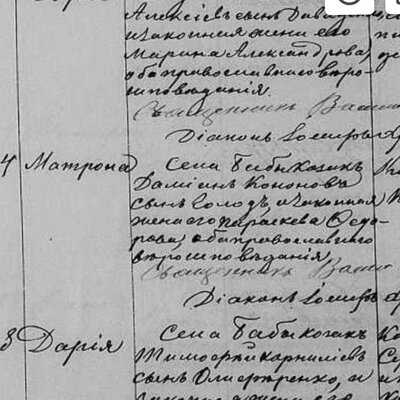 Алексіевъ сынъ Давиденко
и законная жена его
Марина Александрова,
оба православнаго вѣро-
исповѣданія.
Священникъ
Діаконъ Іосифъ
4 Матрона
Села Бабы козакъ
Даміанъ Кононовъ
сынъ Солодъ, и законная
жена его Параскева Ѳедо-
рова, оба православнаго
вѣроисповѣданія
Священникъ
Діаконъ Іосифъ
8 Дарія
Села Бабы козакъ
Тимоѳей Корниліевъ
сынъ и
законная жена его